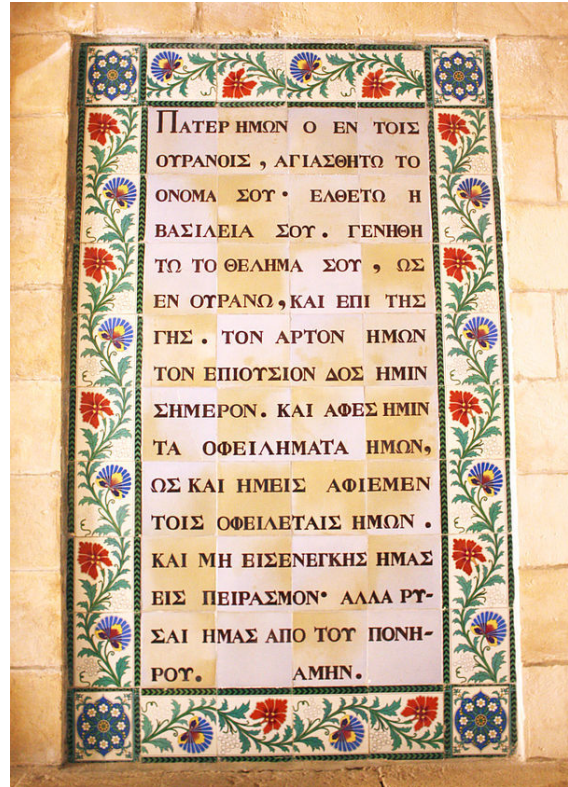 ΠΑΤΕΡ ΗΜΩΝ Ο ΕΝ ΤΟΙΣ
ΟΥΡΑΝΟΙΣ , ΑΓΙΑΣΘΗΤΩ ΤΟ
ΟΝΟΜΑ ΣΟΥ· ΕΛΘΕΤΩ Η
ΒΑΣΙΛΕΙΑ ΣΟΥ. ΓΕΝΗΘΗ
ΤΩ ΤΟ ΘΕΛΗΜΑ ΣΟΥ , ΩΣ
ΕΝ ΟΥΡΑΝΩ , ΚΑΙ ΕΠΙ ΤΗΣ
ΓΗΣ . ΤΟΝ ΑΡΤΟΝ ΗΜΩΝ
ΤΟΝ ΕΠΙΟΥΣΙΟΝ ΔΟΣ ΗΜΙΝ
ΣΗΜΕΡΟΝ. ΚΑΙ ΑΦΕΣ ΗΜΙΝ
ΤΑ ΟΦΕΙΛΗΜΑΤΑ ΗΜΩΝ,
ΩΣ ΚΑΙ ΗΜΕΙΣ ΑΦΙΕΜΕΝ
ΤΟΙΣ ΟΦΕΙΛΕΤΑΙΣ ΗΜΩΝ .
ΚΑΙ ΜΗ ΕΙΣΕΝΕΓΚΗΣ ΗΜΑΣ
ΕΙΣ ΠΕΙΡΑΣΜΟΝ· ΑΛΛΑ ΡΥ-
ΣΑΙ ΗΜΑΣ ΑΠΟ ΤΟΥ ΠΟΝΗ-
ΡΟΥ. ΑΜΗΝ.